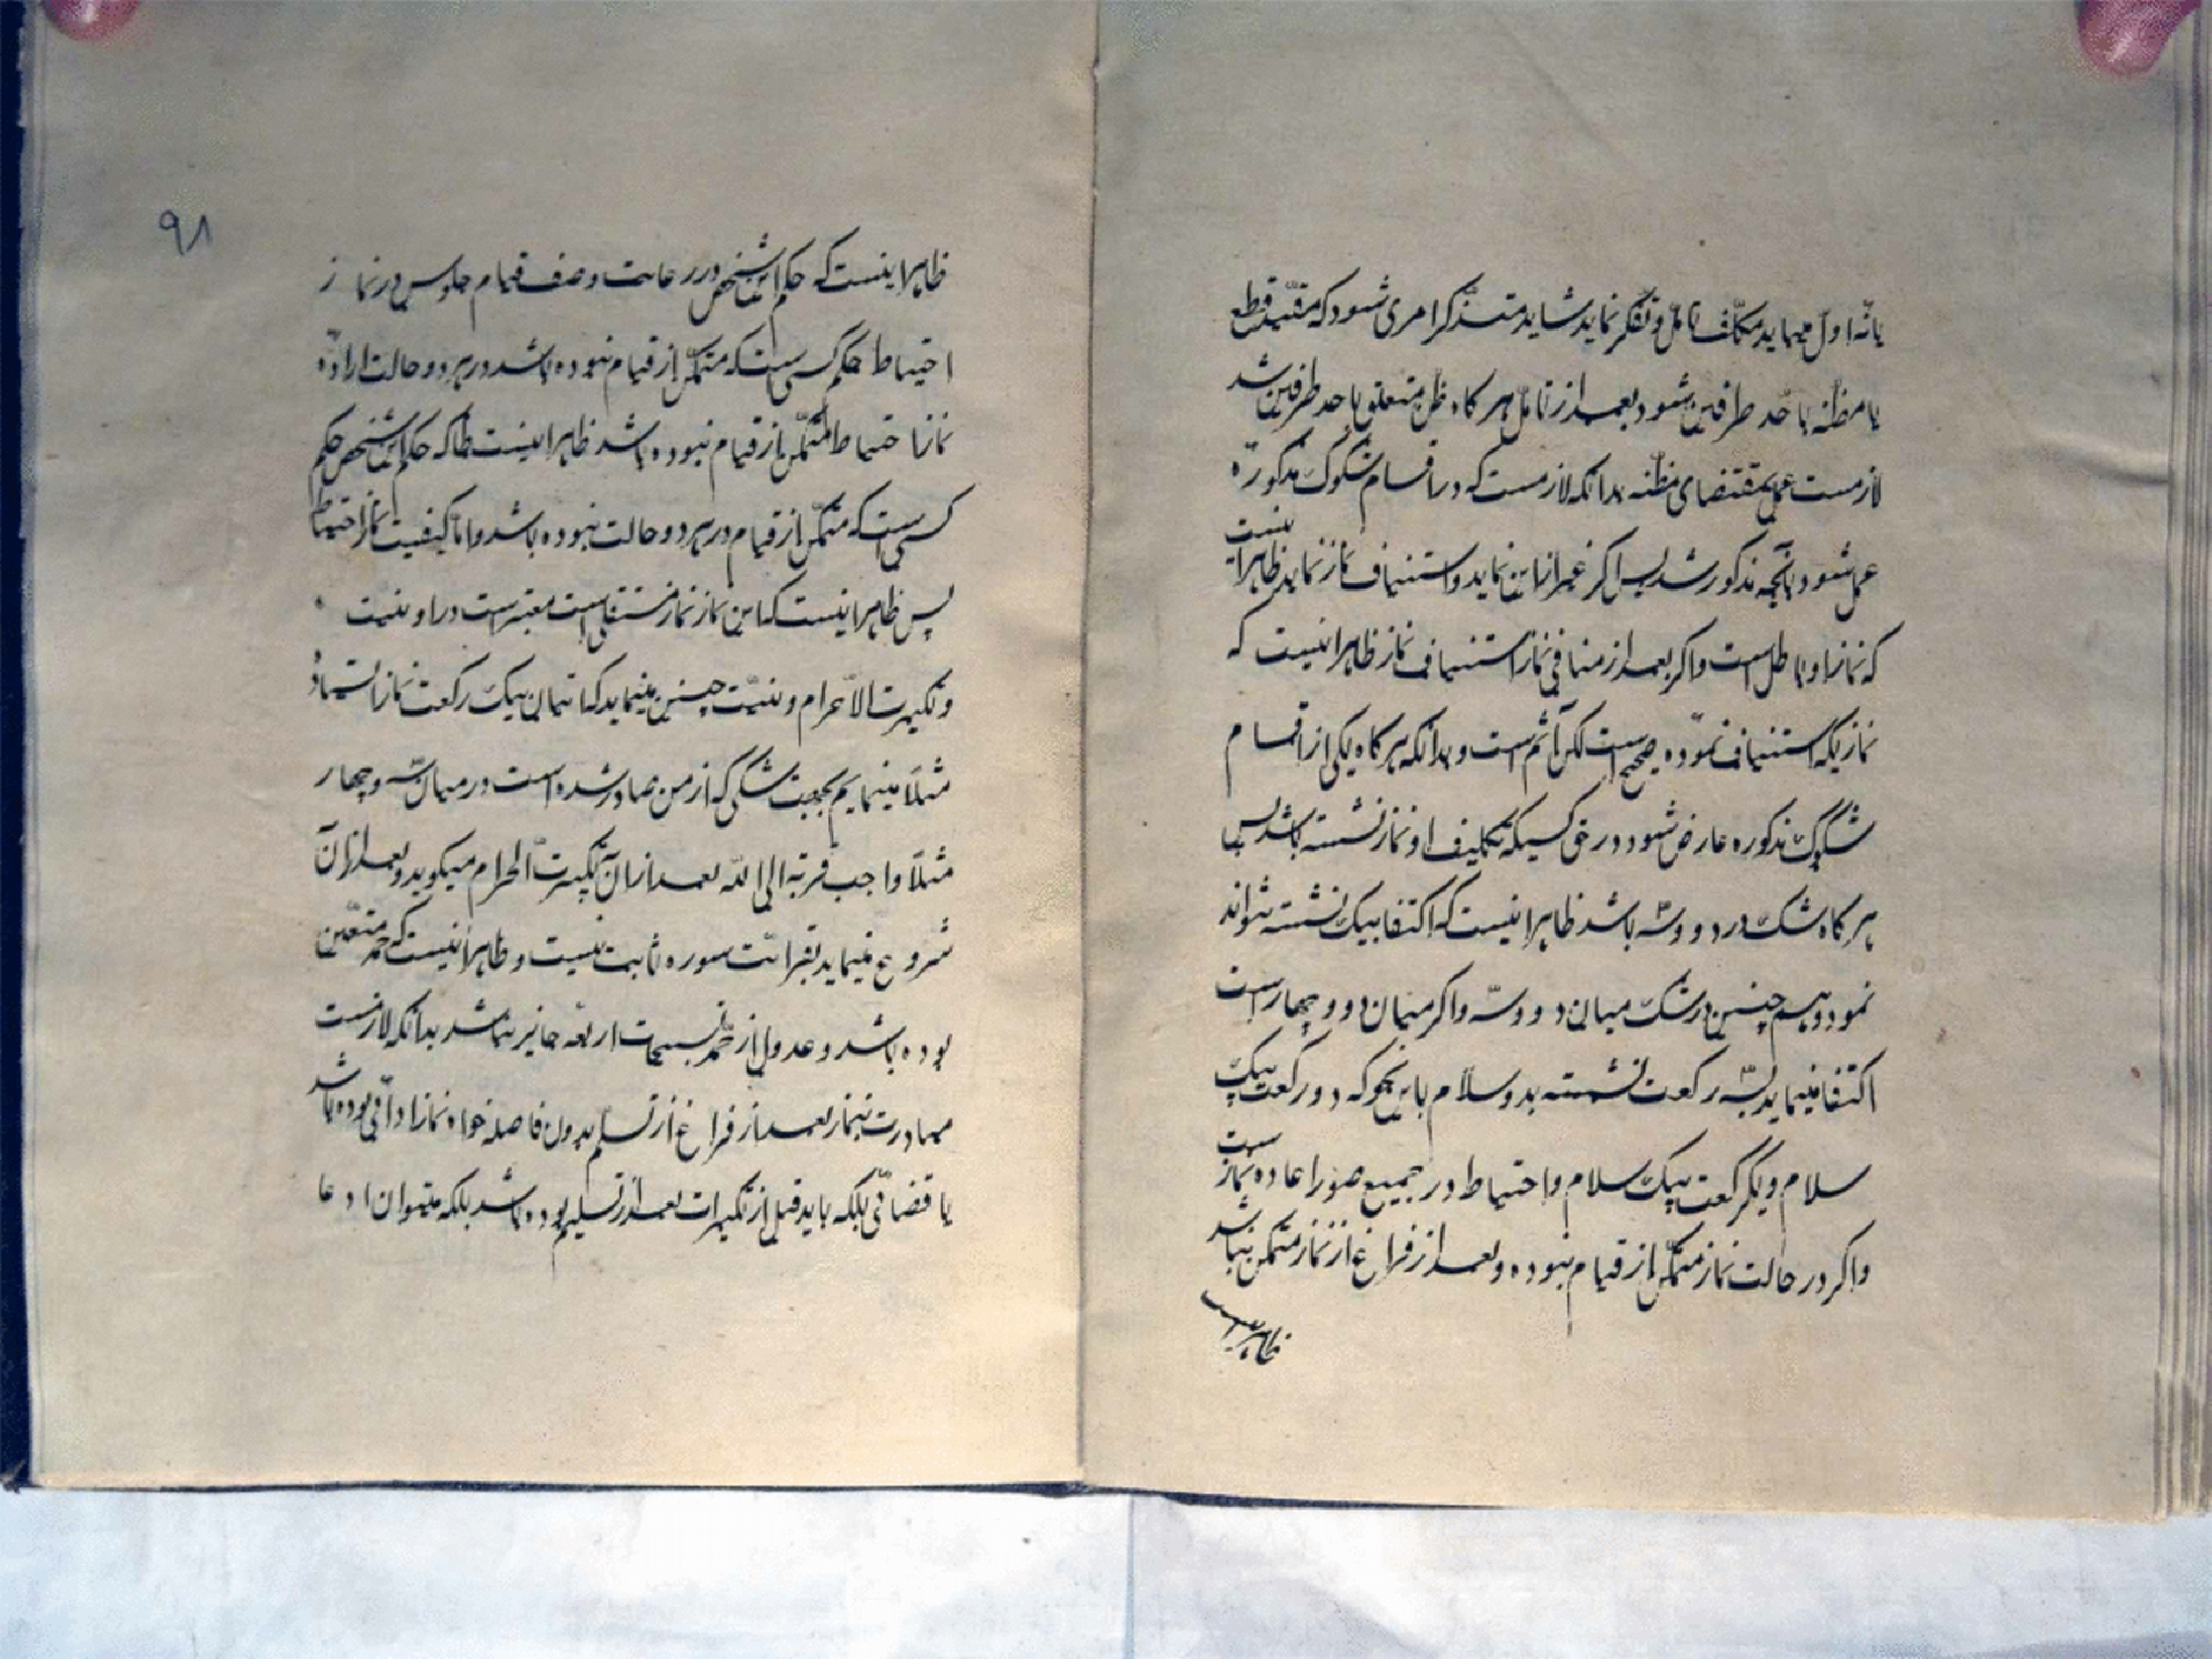 یا نه اول میباید مکلف تامل و تفکر نماید شاید متذکر امری شود که مفید قطع
یا مظنه باحد طرفین شود بعد از تامل هر کاه ظن متعلق باحد طرفین شد
لازمست عمل بمقتضای مظنه بدانکه لازمست که در اقسام شکوک مذکوره
عمل شود بآنچه مذکور شد پس اکر غیر از این نماید و استیناف نماز نماید ظاهر اینست
که نماز او باطل است و اکر بعد از منافی نماز استیناف نماز ظاهر اینست که
نمازیکه استیناف نموده صحیح است لکن آثم است و بدانکه هر کاه یکی از اقسام
شکوک مذکوره عارض شود در حق کسیکه تکلیف او نماز نشسته باشد پس
هر کاه شک در دو و سه باشد ظاهر اینست که اکتفا بیک نشسته تواند
نمود و هم چنین در شک میان دو و سه و اکر میان دو و چهار است
اکتفا مینماید بسه رکعت نشسته بدو سلام باین نحو که دو رکعت بیک
سلام و یکرکعت بیک سلام و احتیاط در جمیع صور اعاده نماز ست
و اکر در حالت نماز متمکن از قیام نبوده و بعد از فراغ از نماز متمکن نباشد
ظاهر اینست
۹۸
ظاهر اینست که حکم این شخص در رعایت وصف قیام جلوس در نماز
احتیاط حکم کسی است که متمکن از قیام نبوده باشد در هر دو حالت اراده
نماز احتیاط متمکن از قیام نبوده باشد ظاهر اینست که حکم این شخص حکم
کسی است که متمکن از قیام در هر دو حالت نبوده باشد و اما کیفیت نماز احتیاط
پس ظاهر اینست که این نماز نماز مستقلی است معتبر است در او نیت
و تکبیرت الاحرام و نیت چنین مینماید که اتیان بیک رکعت نماز ایستاده
مثلا مینمایم بجهت شکی که از من صادر شده است در میان سه و چهار
مثلا واجب قربة الی الله بعد از آن تکبیرت الحرام میکوید و بعد از آن
شروع مینماید بقرائت سوره ثابت نیست و ظاهر اینست که حمد متعین
بوده باشد و عدول از حمد بتسبیحات اربعه جایز نباشد بدانکه لازمست
مبادرت بنماز بعد از فراغ از تسلیم بدون فاصله خواه نماز ادائی بوده باشد
یا قضائی بلکه باید قبل از تکبیرات بعد از تسلیم بوده باشد بلکه میتوان ادعا